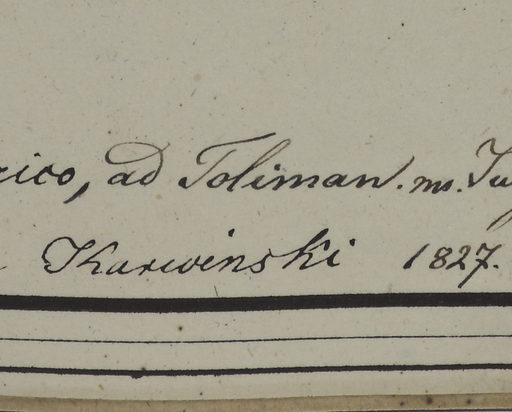 xico, ad Toliman. ms. Ju
Karwinski 1827.